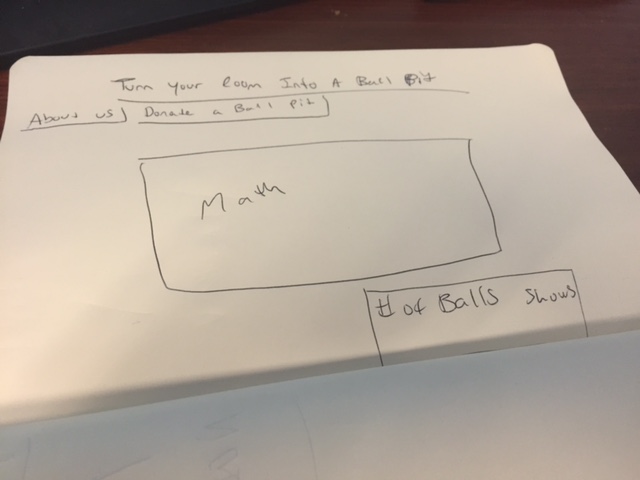 Turn Your Room Into A Ball Pit
About us Donate a Ball Pit
Math
# of Balls shows